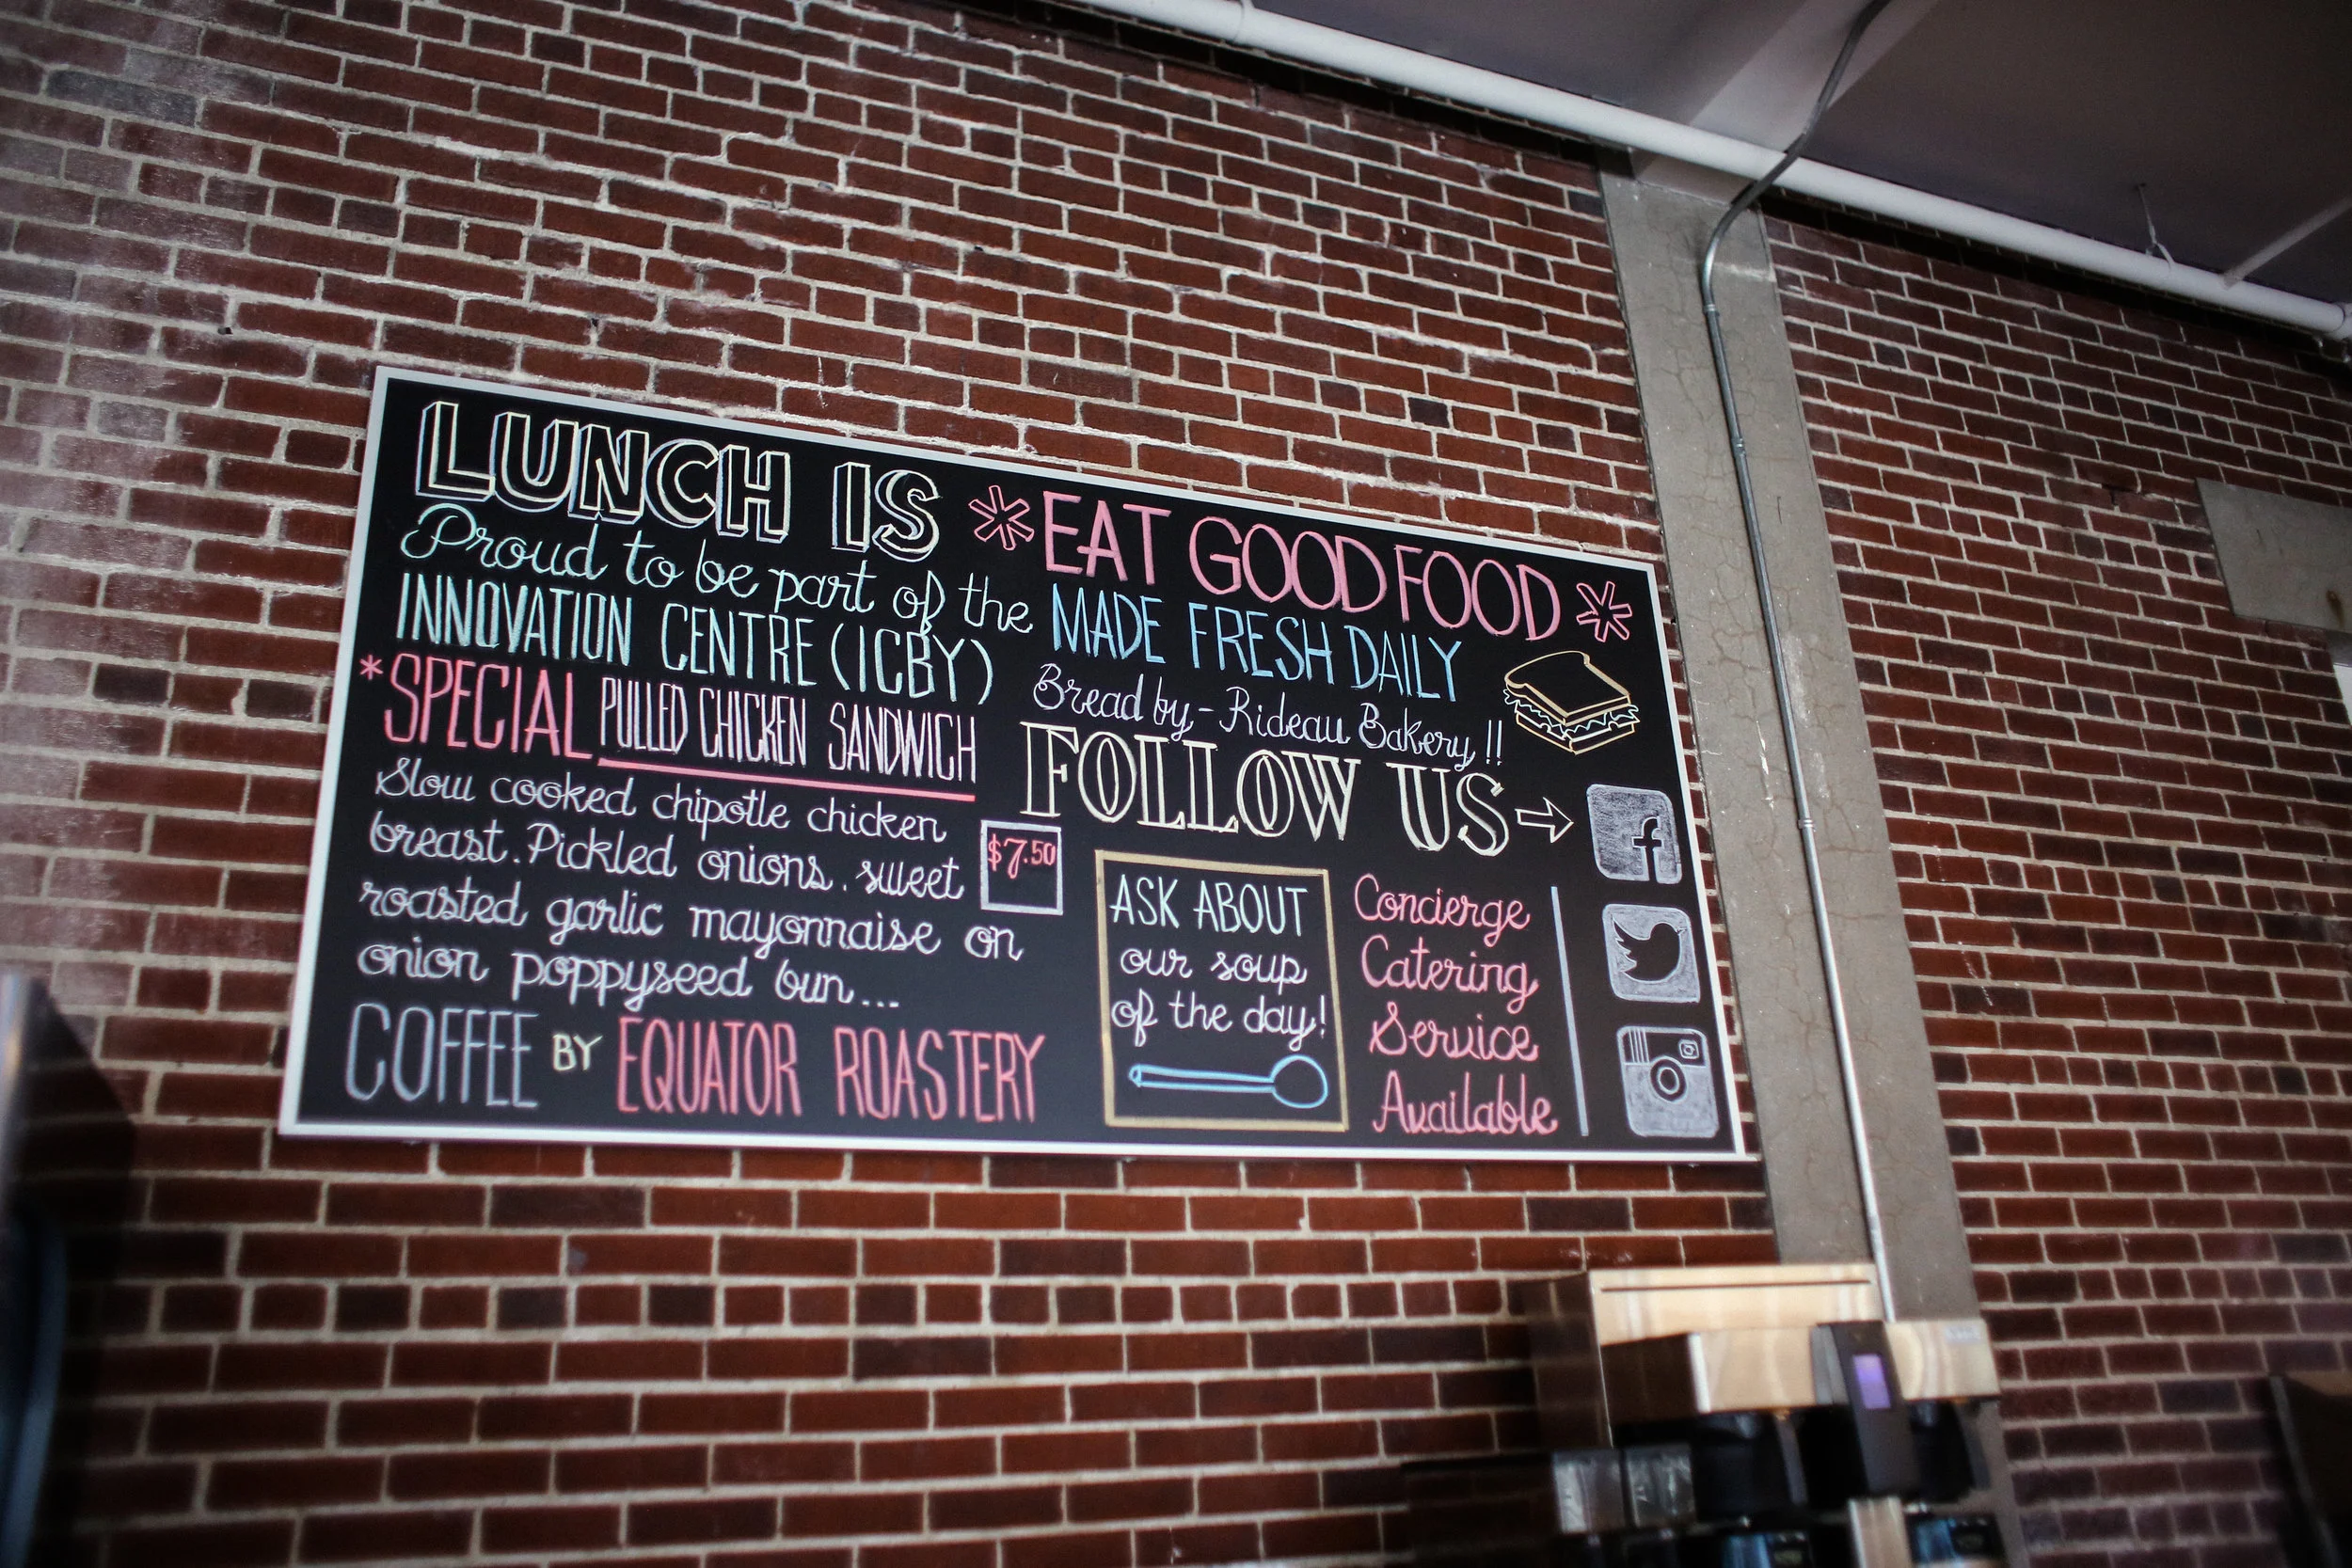 LUNCH IS
Proud to be part of the
INNOVATION CENTRE (ICBY)
*SPECIAL PULLED CHICKEN SANDWICH
Slow cooked chipotle chicken
breast. Pickled onions. sweet
roasted garlic mayonnaise on
onion poppyseed bun...
$7.50
COFFEE BY EQUATOR ROASTERY
* EAT GOOD FOOD *
MADE FRESH DAILY
Bread by - Rideau Bakery !!
FOLLOW US →
f
ASK ABOUT
our soup
of the day!
Concierge
Catering
Service
Available